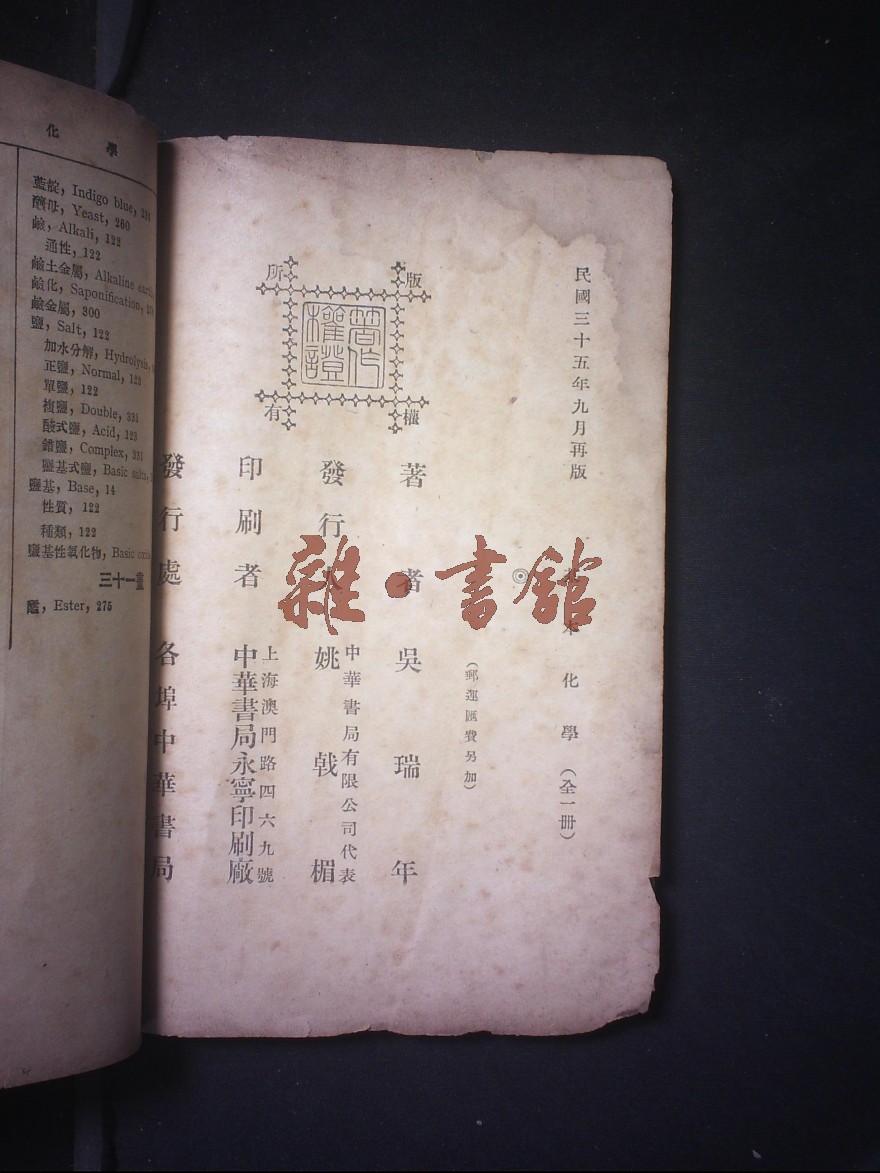 化學
藍靛, Indigo blue,
酵母, Yeast, 260
鹼, Alkali, 122
通性, 122
鹼土金屬, Alkaline
鹼化, Saponification,
鹼金屬, 300
鹽, Salt, 122
加水分解, Hydrolysis,
正鹽, Normal, 123
單鹽, 122
複鹽, Double, 331
酸式鹽, Acid, 123
錯鹽, Complex, 331
鹽基式鹽, Basic
鹽基, Base, 14
性質, 122
種類, 122
鹽基性氧化物, Basic
三十一畫
Ester, 275
民國三十五年九月再版
本化學（全一冊）
（郵運匯費另加）
版權所有
著作權證
著者 吳瑞年
發行人 姚戟楣
中華書局有限公司代表
印刷者 中華書局永寧印刷廠
上海澳門路四六九號
發行處 各埠中華書局
雜·書館